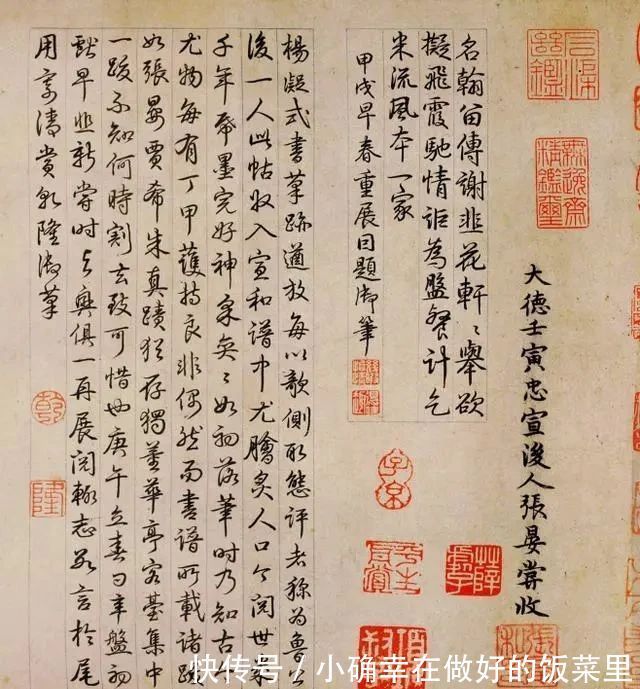 大德壬寅忠宣後人張晏嘗收
名翰留傳謝韭花軒〻舉欲
擬飛霞馳情詎為盤餐計乞
米流風本一家
甲戌早春重展因題御筆
楊凝式書草跡遒放每以欹側取態評者稱為魯公
後一人此帖收入宣和譜中尤膾炙人口今閱世幾
千年帋墨完好神采奕〻如初落筆時乃知古人
尤物每有丁甲護持良非偶然而書譜所載諸跋
如張晏賈希朱真蹟猶存獨董華亭容臺集中
一跋不知何時割去致可惜也庚午立春日辛盤初
獻早韭新嘗時與興俱一再展閱輒志數言於尾
用寄清賞乾隆御筆
無逸齋精鑑璽
乾
隆
快传号/小确幸在做好的饭菜里